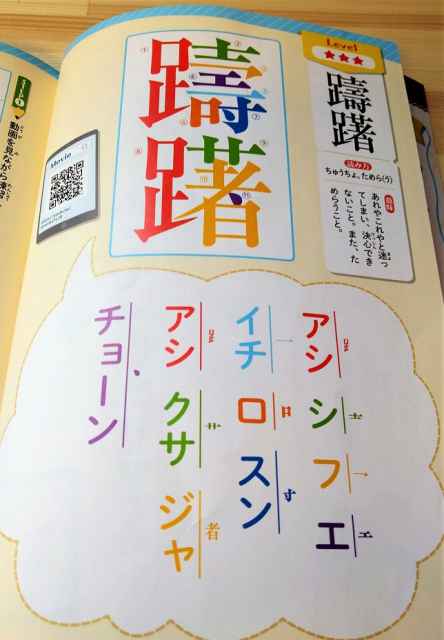 Level
★★★
躊躇
読み方
ちゅうちょ、ためら(う)
意味
あれやこれやと迷っ
てしまい、決心でき
ないこと。また、た
めらうこと。
躊躇
Movie
動画を見ながら練習
アシ シ フ エ
𧾷 士 フ エ
イチ ロ スン
一 口 寸
アシ クサ ジャ
𧾷 艹 者
チョーン
、